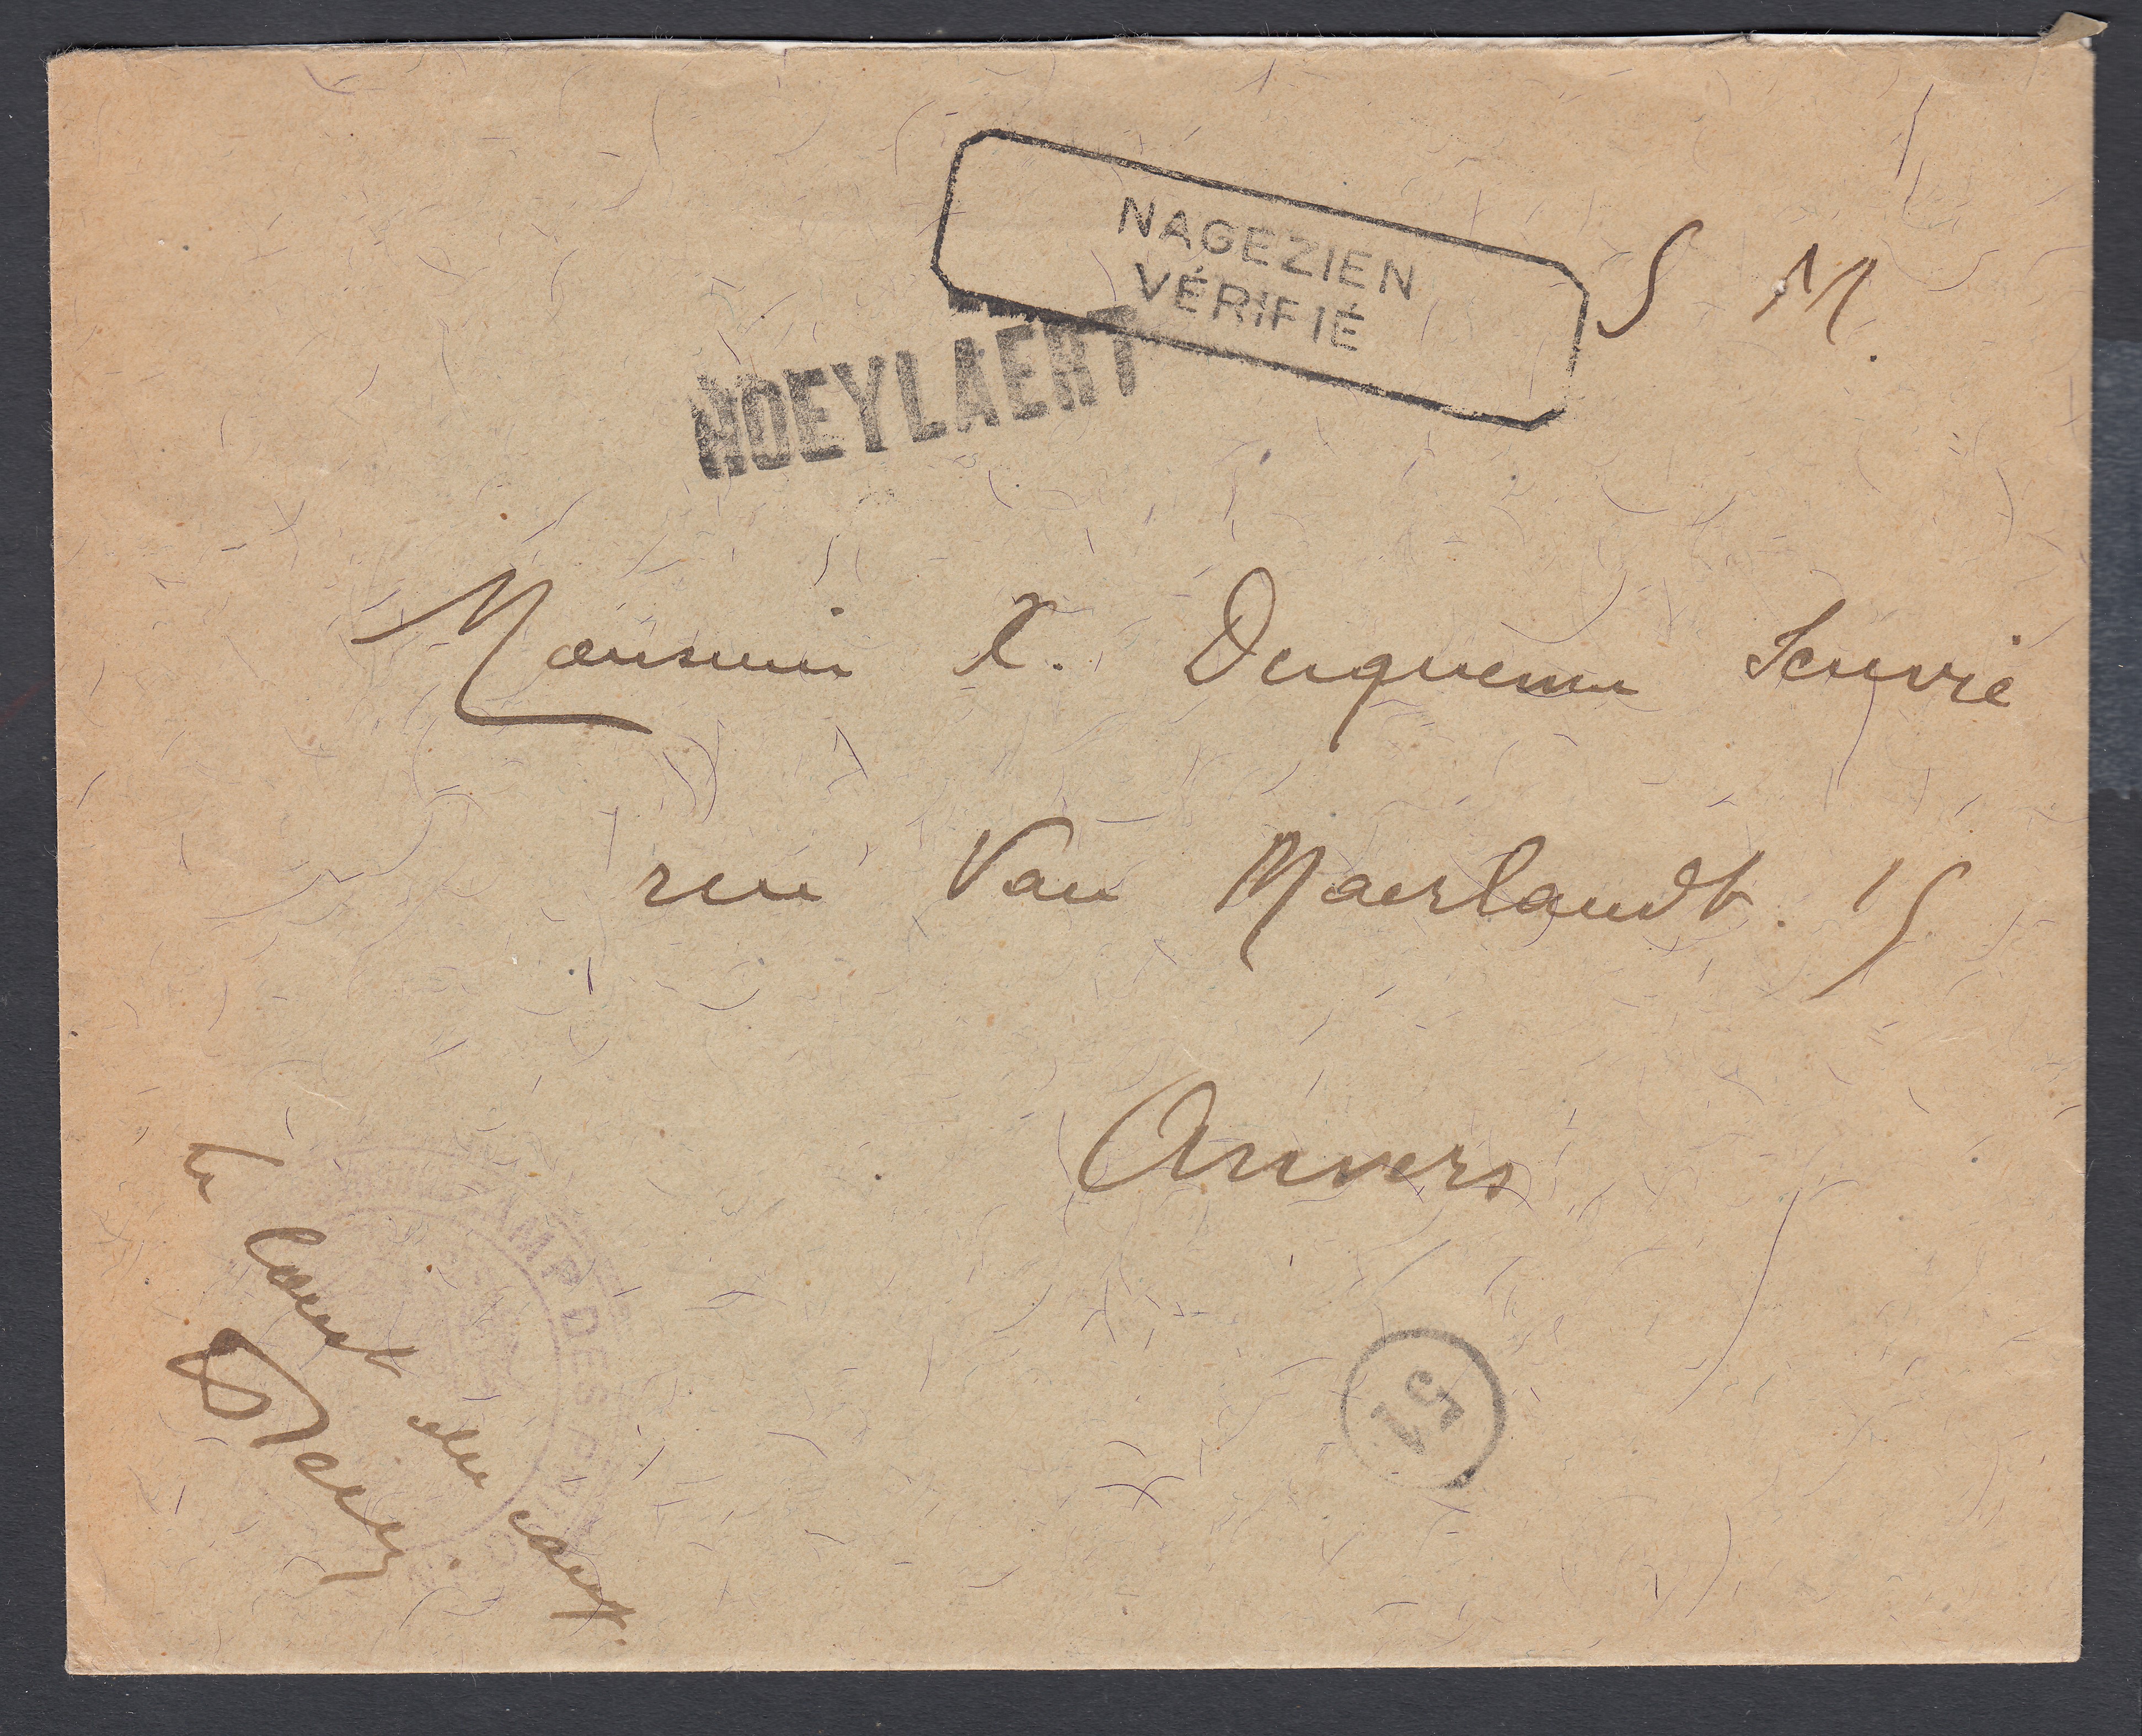 NAGEZIEN
VÉRIFIÉ
S M.
HOEYLAERT
Monsieur X. Duquenne
rue Van Maerlandt. 15
Anvers
CAMP DES
Le Comt du camp.
51